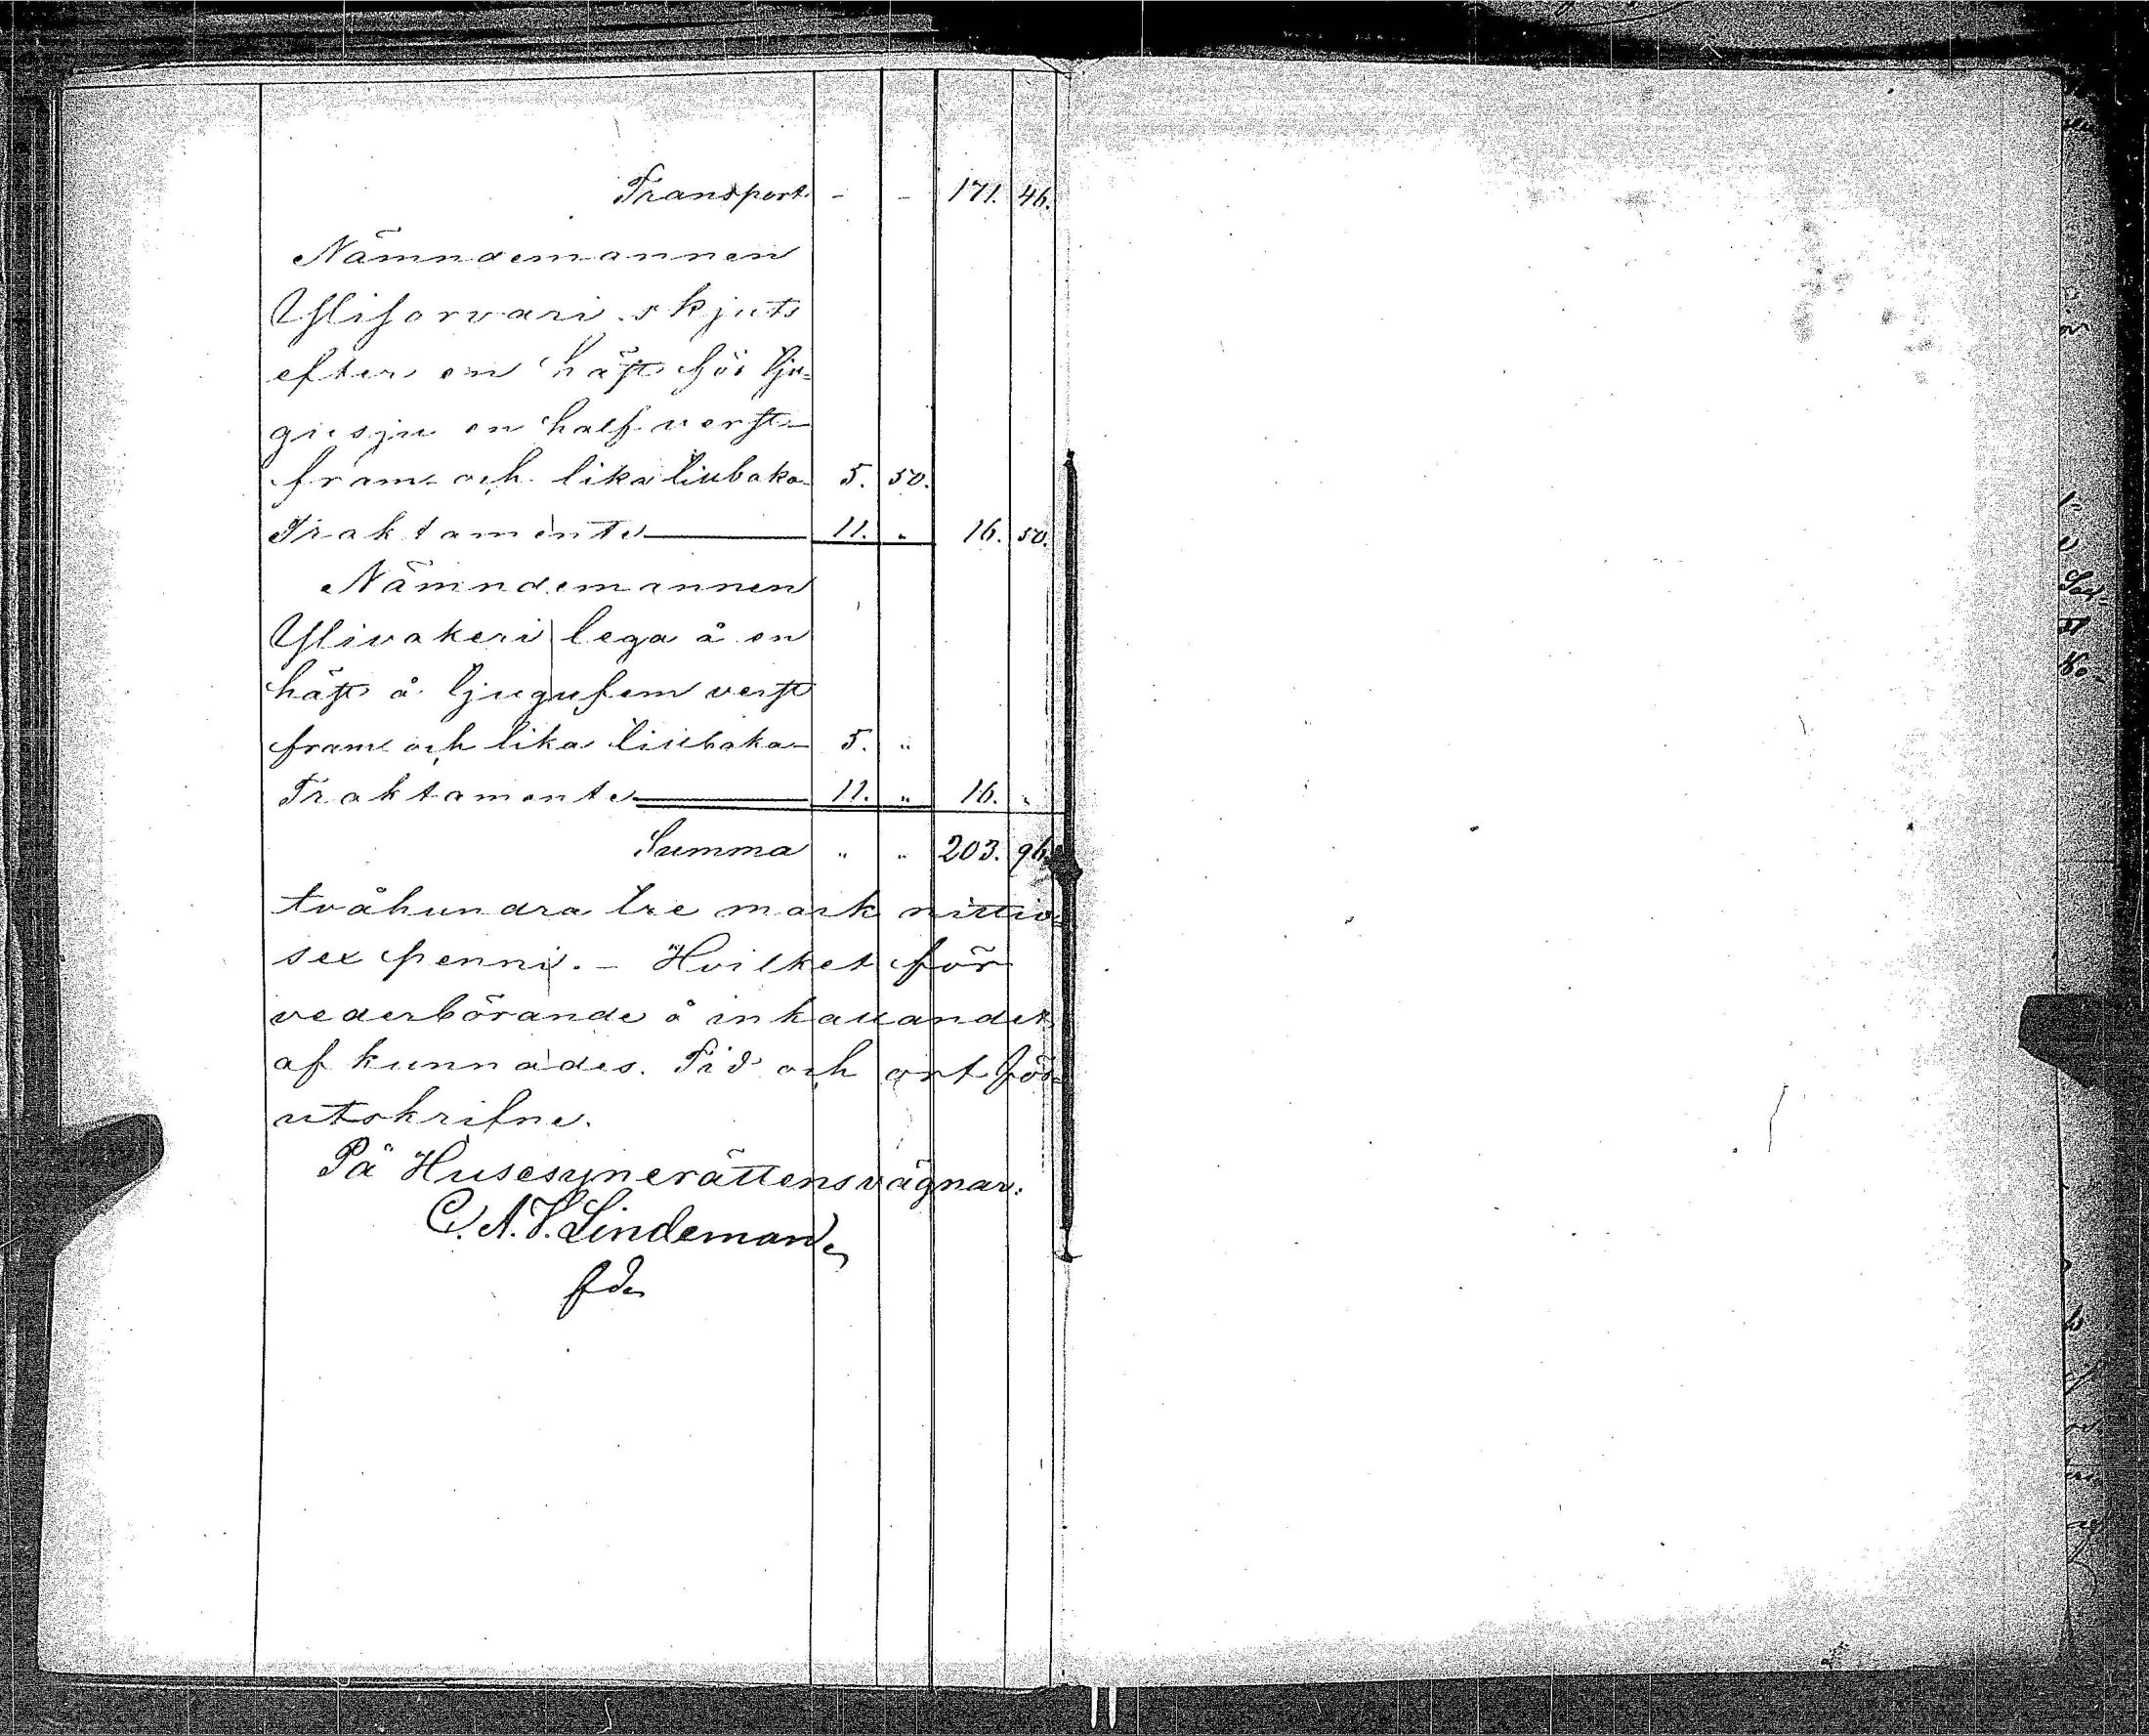 Transport. - - 171. 46.
Nämndemannen
Ylisorvari skjuts
efter en häst för tju-
gusju en half verst
fram och lika tillbaka 5. 50.
Traktamente 11. " 16. 50.
Nämndemannen
Ylivakeri lega å en
häst å tjugufem verst
fram och lika tillbaka 5. "
Traktamente 11. " 16. "
Summa " " 203. 96.
tvåhundra tre mark nittio
sex penni. - Hvilket för
vederbörande å inkallandet
afkunnades. Tid och ort för-
utskrifne.
På Husesynerättens vägnar:
C. A. V. Lindeman